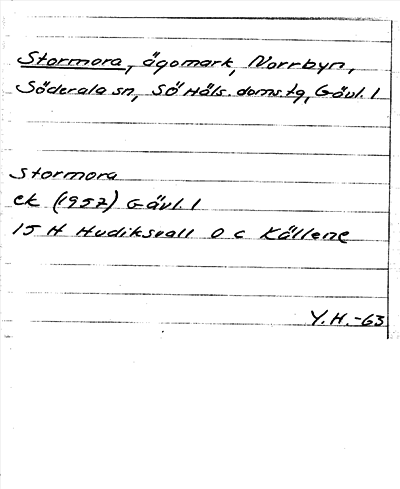 Stormora, ägomark, Norrbyn,
Söderala sn, SÖ Häls. doms. tg, Gävl. l
Stormora
ek (1957) Gävl. l
15 H Hudiksvall 0 c Källene
Y.H.-63